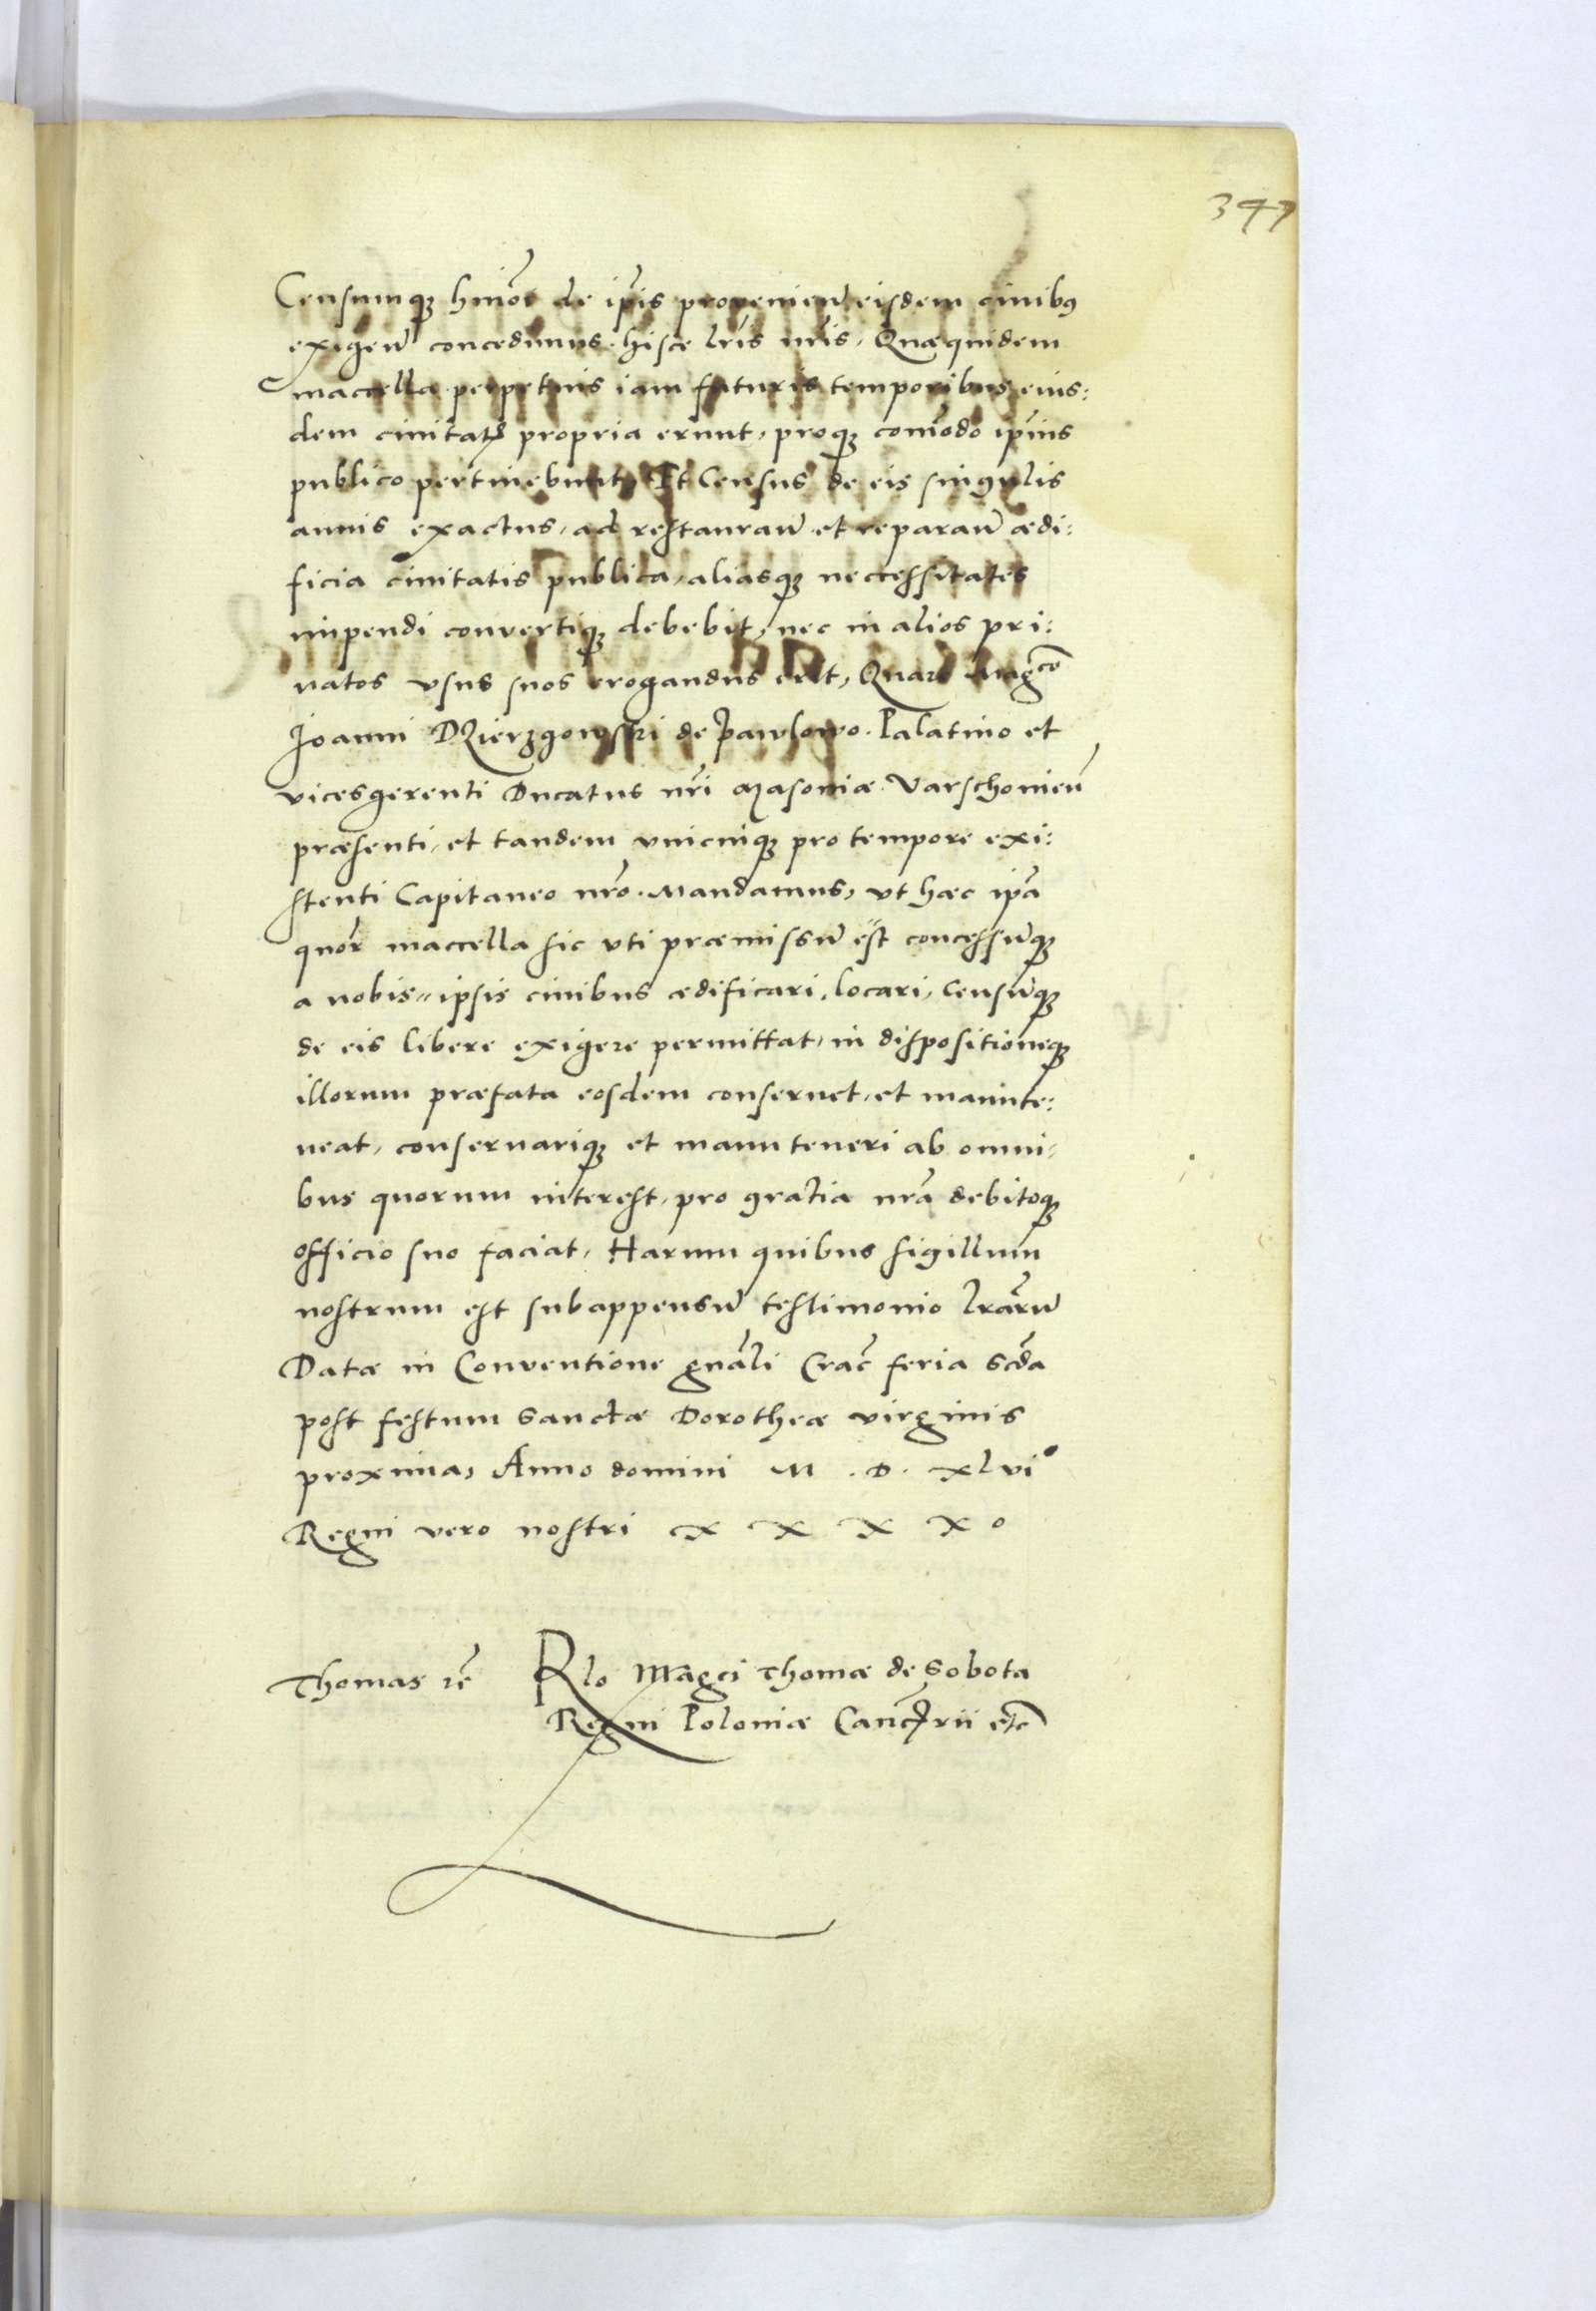 347
Censumq₃ hmõi de ip̃is provenieñ eisdem civibꝰ
exigeñ concedimus hisce lr̃is nr̃is, Quæquidem
maccella perpetuis iam futuris temporibus eius:
dem civitatꝭ propria erunt, proq₃ com̃odo ip̃ius
publico pertinebunt, Et Census de eis singulis
annis exactus, ad restauranđ et reparanđ ædi:
ficia civitatis publica, aliasq₃ neccessitates
impendi convertiq₃ debebit, nec in alios pri:
vatos usus suos erogandus erit, Quare Mag̃co
Joanni Dzierzgowski de Pawlowo Palatino et
vicesgerenti Ducatus nr̃i Masoviæ Varschovieñ
præsenti, et tandem unicuiq₃ pro tempore exi:
stenti Capitaneo nr̃o. Mandamus, ut hæc ip̃a
quor maccella sic uti præmissũ est concessũq₃
a nobis, ipsis civibus ædificari, locari, Censũq₃
de eis libere exigere permittat, in dispositioneq₃
illorum præfata eosdem conservet, et manute:
neat, conservariq₃ et manu teneri ab omni,
bus quorum interest, pro gratia nr̃a debitoq₃
officio suo faciat, Harum quibus sigillum
nostrum est subappensũ testimonio lr̃arũ
Datæ in Conventione gnãli Crac̃ feria scđa
post festum Sanctæ Dorotheæ virginis
proxima, Anno domini M . D . xlvi°
Regni vero nostri x x x x o
Thomas
Rlo Mag̃ci Thomæ de Sobota
Regni Poloniæ Canc̃rii etc̃